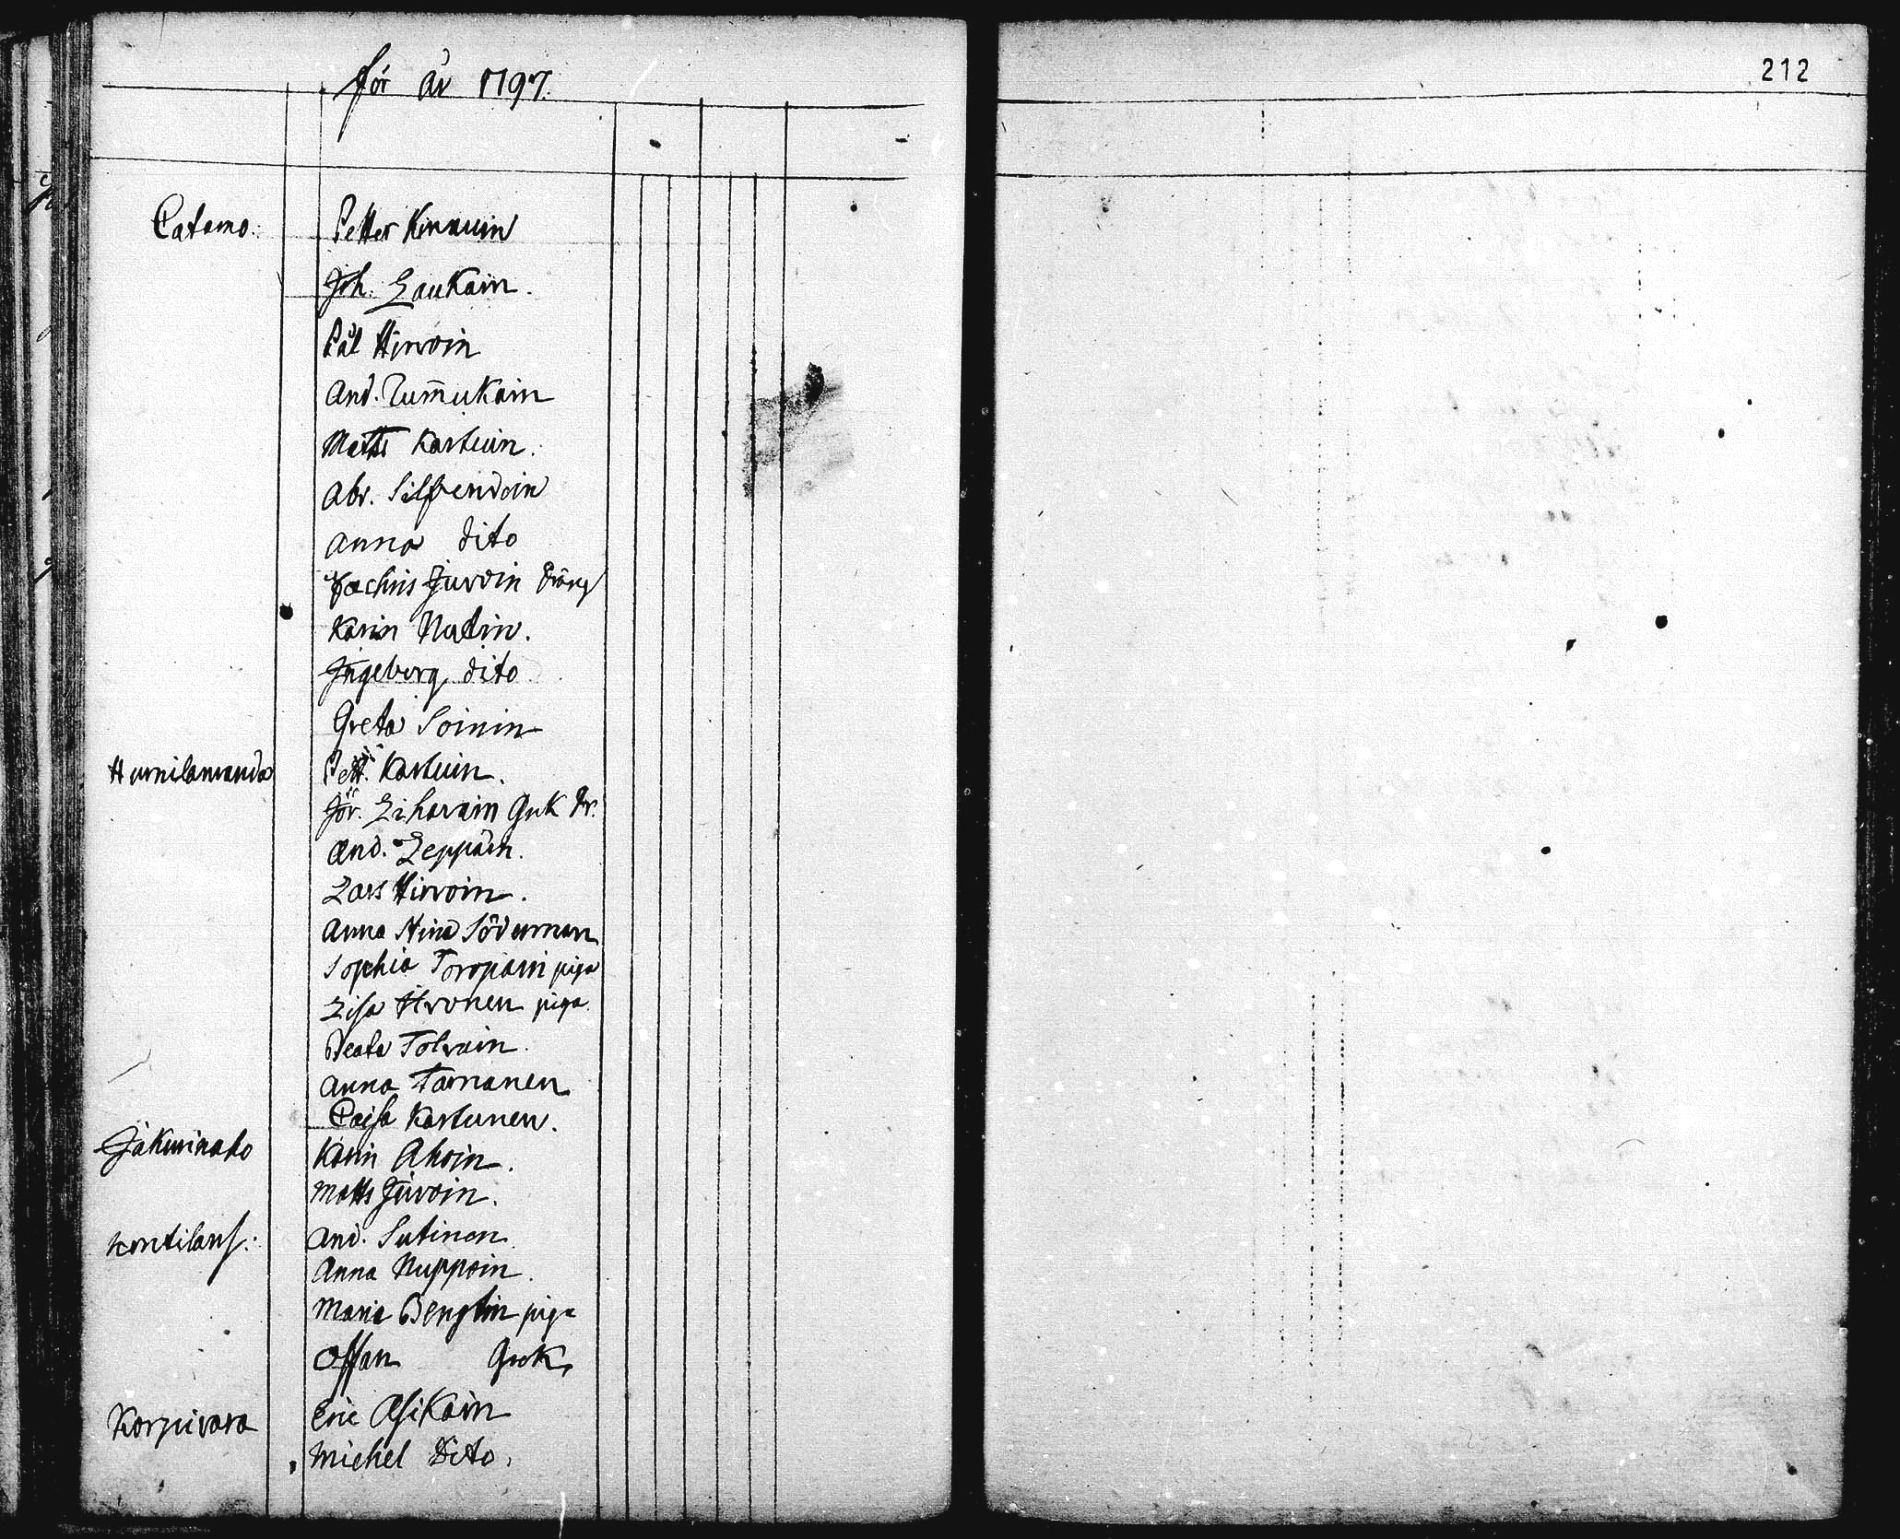 för år 1797.
212
Catamo: Petter Kinnuin
Joh. Laukain.
Pål Hirvoin
And. Tum̄ukain
Matts Kortuin.
Abr. Silfvendoin
Anna dito
Zachris Jurvoin dräng
Karin Nutin.
Ingeborg dito
Greta Soinin
Humilamanda Pett. Kortuin.
Jör. Liharain Enk dr.
And. Leppäin.
Lars Hirvoin.
Anna Stina Söderman
Sophia Toropain piga
Lisa Hirvonen piga
Beata Tolvain
Anna Tarnanen
Caisa Kortunen.
Jåkuinaho Karin Ahoin.
Matts Jürvoin.
Kontilans: And. Sutinen
Anna Nuppoin.
Maria Bengtin piga
Offan Enk
Korpivara Eric Asikain
Michel Dito.